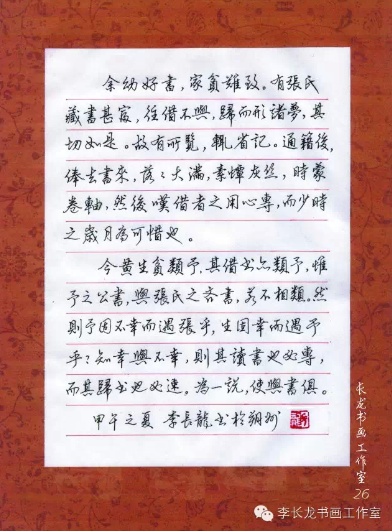 余幼好書，家貧難致。有張氏
藏書甚富，往借不與，歸而形諸夢，其
切如是。故有所覽，輒省記。通籍後，
俸去書來，落〻大滿，素蟫灰丝，時蒙
卷軸，然後嘆借者之用心專，而少時
之歲月為可惜也。
今黄生貧類予，其借书亦類予，惟
予之公書，與張氏之吝書，若不相類。然
則予固不幸而遇張乎，生固幸而遇予
乎？知幸與不幸，則其讀書也必專，
而其歸书也必速。為一説，使與書俱。
甲午之夏 李長龍书於朔州
长龙书画工作室
26
李长龙书画工作室